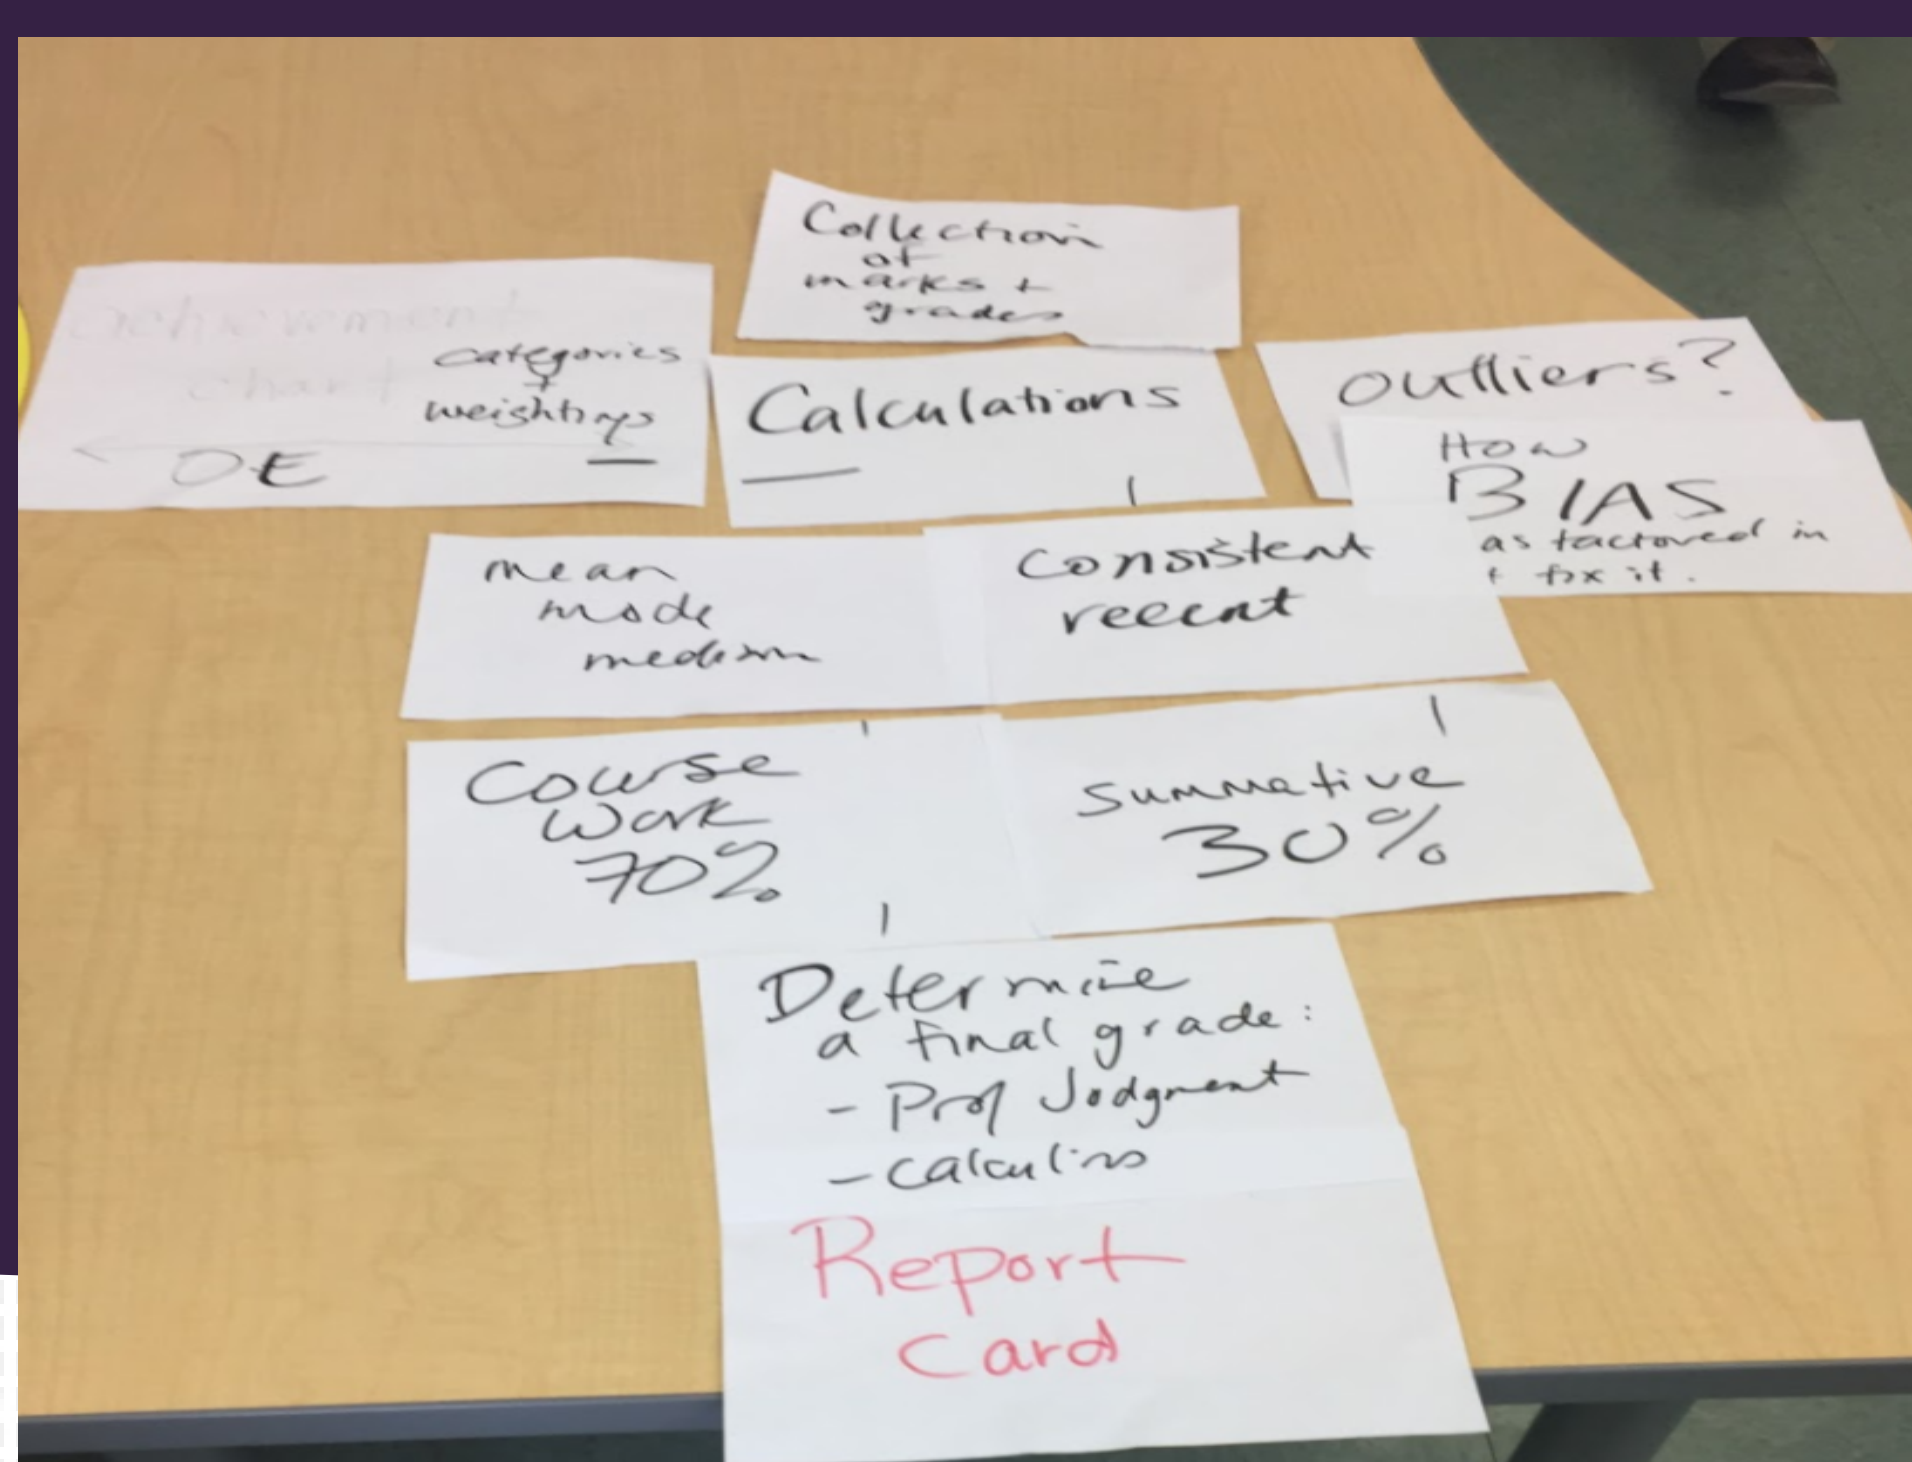 Collection
of
marks +
grades
achievement
chart
categories
+
weightings
OE
Calculations
outliers?
How
BIAS
as factored in
+ fix it.
mean
mode
median
Consistent
recent
Course
Work
70%
Summative
30%
Determine
a final grade:
- Prof Judgment
Report
Card